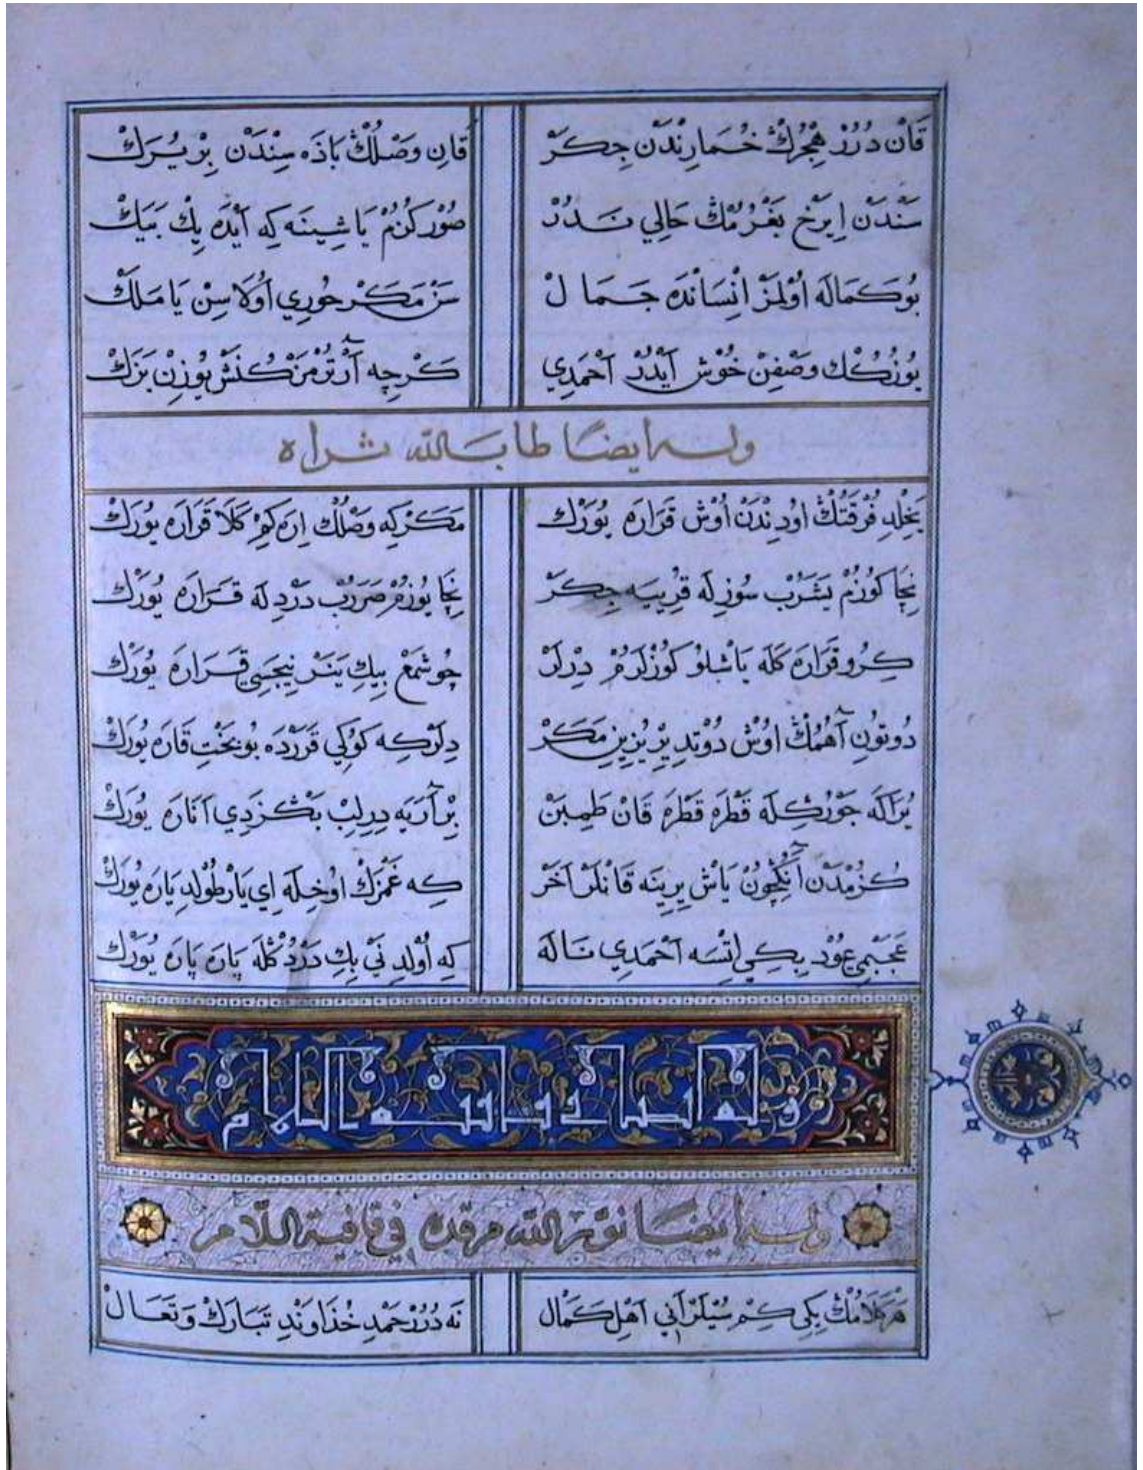 قَانْ دُرُرْ هِجْرُكْ خُمَارِنْدَنْ جِكَرْ قَانِ وَصْلُكْ بَادَه سِنْدَنْ بِرْ يُرَكْ
سَنْدَنْ اِيرَخ بَغْرُمُكْ حَالِي نَدُرْ صُوْر كُزُمْ يَاشِينَه كِه آيْدَه بِكْ بَيَكْ
بُو كَمَالَه اُولْمَزْ اِنْسَانْدَه جَمَالْ سَنْ مَكَرْ حُورِي اُولَاسِنْ يَا مَلَكْ
يُوزُكُكْ وَصْفِنْ خُوشْ آيْدُرْ اَحْمَدِي كَرْچِه آرْتُرْمَزْ كُنَشْ يُوزِنْ بَزَكْ
وله ايضًا طاب الله ثراه
فُرْقَتُكْ اُودِنْدَنْ اُوشْ قَرَارَه يُورَكْ مَكَرْ كِه وَصْلُكْ اِرَه كِمْ كَلَا قَرَارَه يُورَكْ
نِچَا كُوزُمْ يَشَرُبْ سُوزِلَه جِكَرْ نِچَا يُوزُمْ صَرَرُبْ دَرْدِلَه قَرَارَه يُورَكْ
كِرُو قَرَارَه كَلَه يَاشْلُو كُوزْلَرُمْ دِرْلَرْ چُو شَمْعْ بِيكِ يَنَرْ نِيجَسِي قَرَارَه يُورَكْ
دُوتُونِ آهُمُكْ اُوشْ دُوتْدِ يِرْ يُزِينِ مَكَرْ دِلَرْ كِه كُوكِي قَرَرْدَه بُو بَخْتِ قَارَه يُورَكْ
جَوْرُكِلَه قَطْرَه قَطْرَه قَانْ طَمِيبَنْ بِرْ آرَيَه دِرِلِبْ بَكْزَدِي اَنَارَه يُورَكْ
كُزُمْدَنْ آنُكِچُونْ يَاشْ يِرِينَه قَانْلَرْ اَخَرْ كِه غَمْزَكْ اُوخِلَه اِي يَارْ طُولْدِ يَارَه يُورَكْ
عَجَبْمِي عُودْ بِكِي اِتْسَه اَحْمَدِي نَالَه كِه اُولْدِ نَيْ بِكِ دَرْدُكْلَه پَارَه پَارَه يُورَكْ
وله ايضًا نوّر الله مرقده في قافية اللّام
هَرْ كَلَامُكْ يِكِي كِمْ سُيْلَرْ اَنِي اَهْلِ كَمَالْ نَه دُرُرْ حَمْدِ خُذَاوَنْدِ تَبَارَكْ وَتَعَالْ